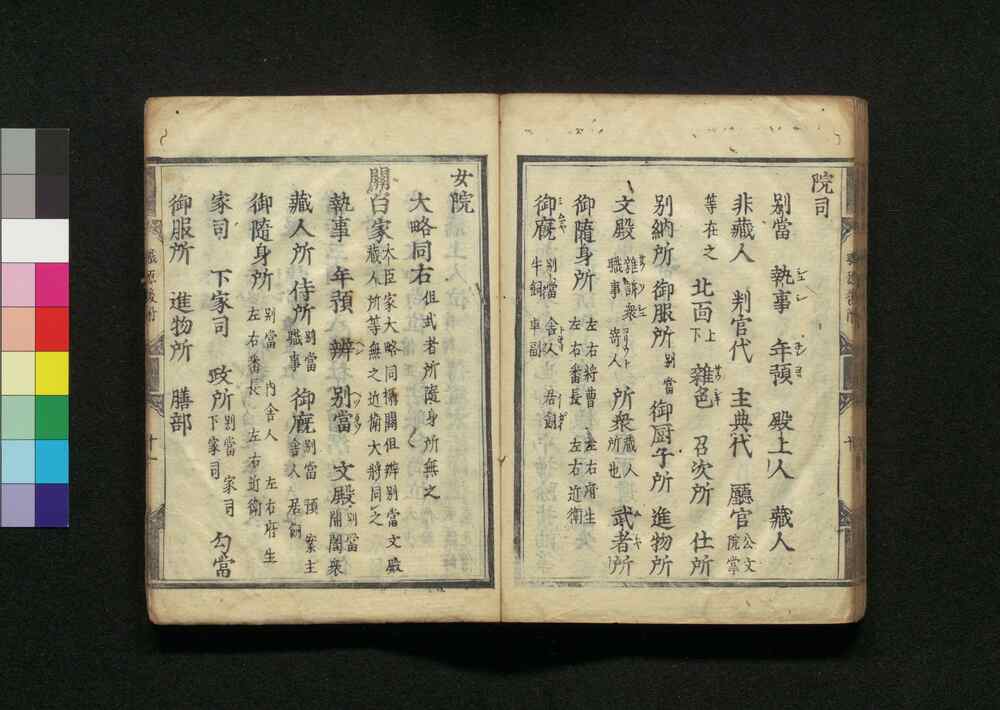 院司
別當 執事 年預 殿上人 藏人
非藏人 判官代 主典代 廳官 公文 院掌
等在之 北面 上下 雜色 召次所 仕所
別納所 御服所 別當 御厨子所 進物所
文殿 雜訴衆 職事 寄人 所衆 藏人所也 武者所
御隨身所 左右將曹 左右府生 左右番長 左右近衛
御廐 別當 舍人 居飼 牛飼 車副
女院
大略同右 但武者所隨身所無之
關白家 大臣家大略同攝關但辨別當文殿 藏人所等無之近衛大將同之
執事 年預 辨 別當 文殿 別當 開闔衆
藏人所 侍所 別當 職事 御廐 別當 預 案主 舍人 居飼
御隨身所 別當 內舍人 左右府生 左右番長 左右近衛
家司 下家司 政所 別當 家司 下家司 勾當
御服所 進物所 膳部
十一